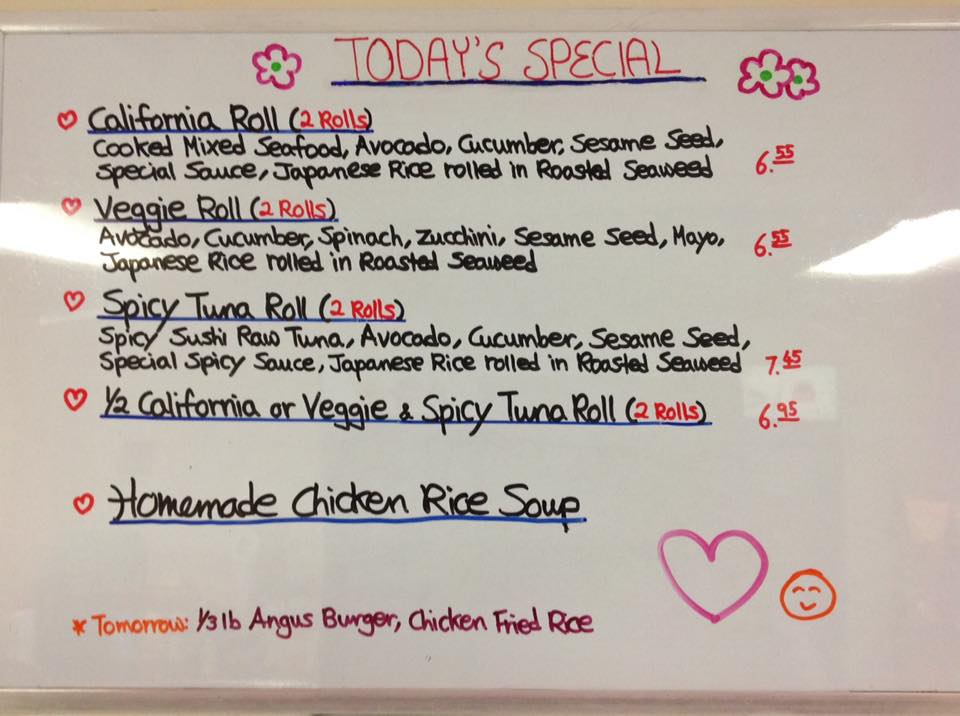 TODAY'S SPECIAL
California Roll (2 Rolls)
Cooked Mixed Seafood, Avocado, Cucumber, Sesame Seed,
Special Sauce, Japanese Rice rolled in Roasted Seaweed 6.55
Veggie Roll (2 Rolls)
Avocado, Cucumber, Spinach, Zucchini, Sesame Seed, Mayo, 6.55
Japanese Rice rolled in Roasted Seaweed
Spicy Tuna Roll (2 Rolls)
Spicy Sushi Raw Tuna, Avocado, Cucumber, Sesame Seed,
Special Spicy Sauce, Japanese Rice rolled in Roasted Seaweed 7.45
1/2 California or Veggie & Spicy Tuna Roll (2 Rolls) 6.95
Homemade Chicken Rice Soup
* Tomorrow: 1/3 lb Angus Burger, Chicken Fried Rice